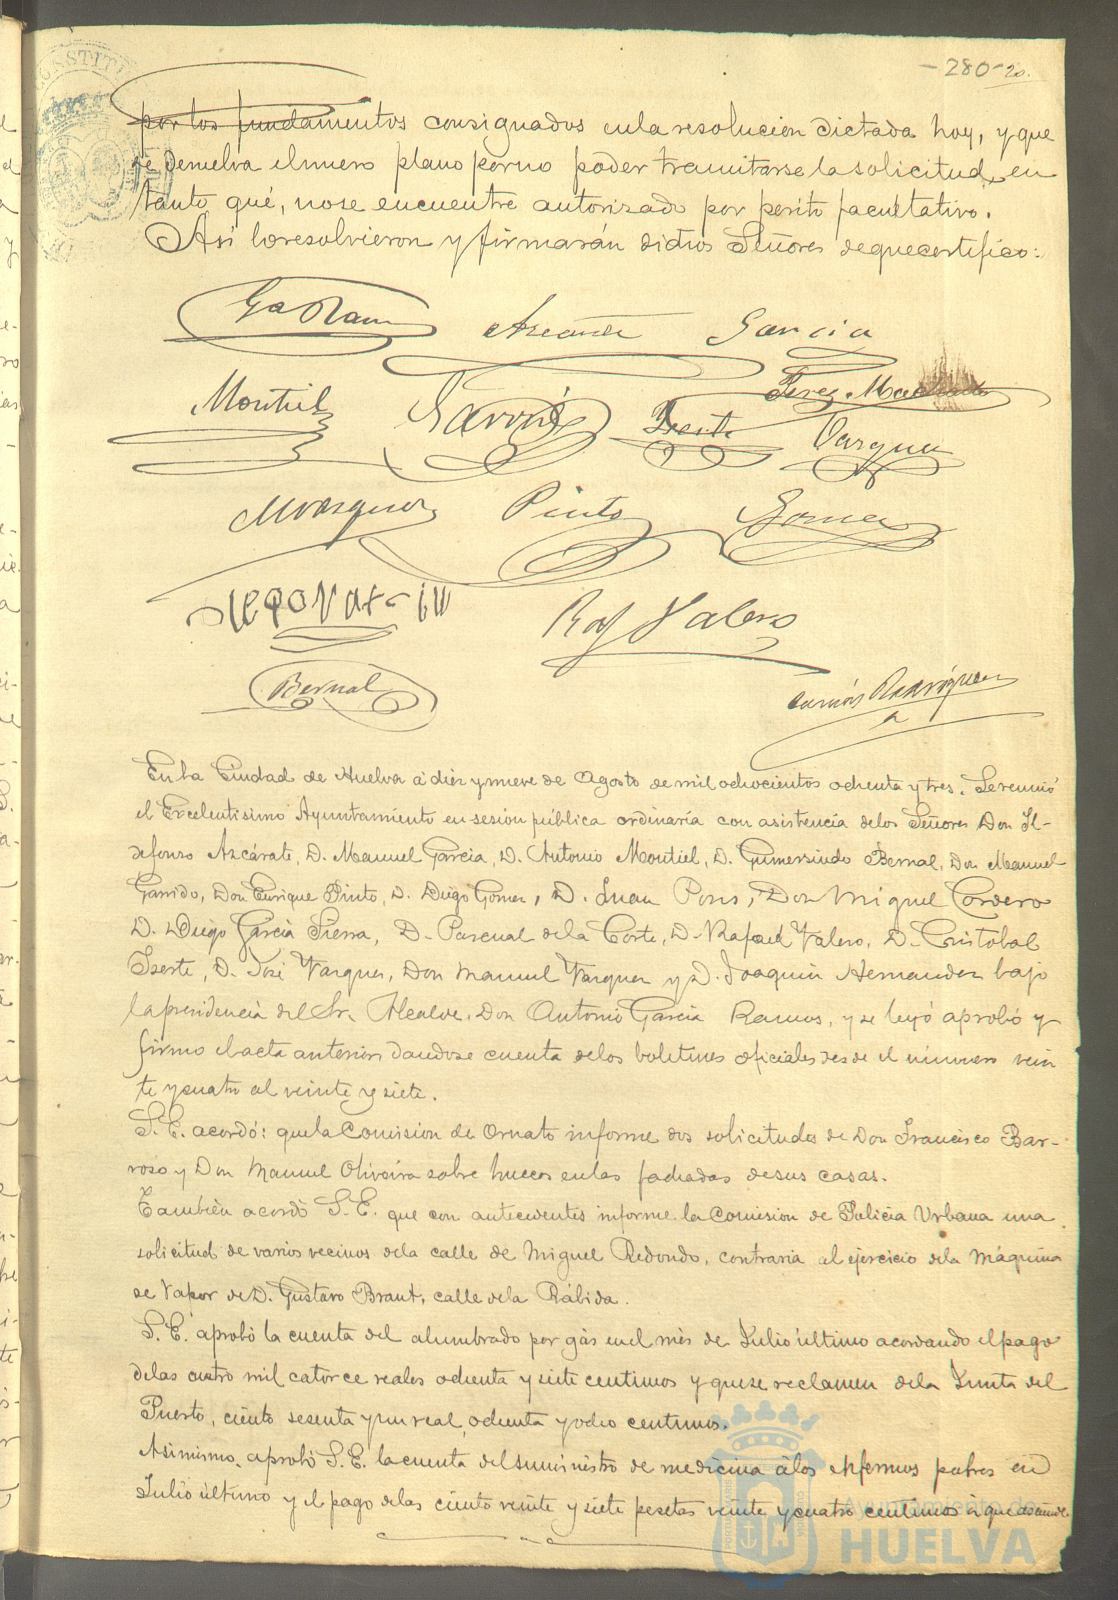 -280- 20.
por los fundamentos consignados en la resolución dictada hoy, y que
se devuelva el nuevo plano por no poder tramitarse la solicitud, en
tanto qué, no se encuentre autorizado por perito facultativo.
Así lo resolvieron y firmarán dichos Señores de que certifico:
Ga Ramos Azcárate Garcia
Montiel Garrido Iserte Perez Machado
Vargues
M Vazquez Pinto Gomez
Raf Valero
Bernal
Rodriguez
En la Ciudad de Huelva á diez y nueve de Agosto de mil ochocientos ochenta y tres. Se reunió
el Excelentisimo Ayuntamiento en sesión pública ordinaria con asistencia de los Señores Don Il-
defonso Azcárate, D. Manuel Garcia, D. Antonio Montiel, D. Gumersindo Bernal, Don Manuel
Garrido, Don Enrique Pinto, D. Diego Gomez, D. Juan Pons, Don Miguel Cordero
D. Diego Garcia Sierra, D. Pascual de la Corte, D. Rafael Valero, D. Cristóbal
Iserte, D. José Vargues, Don Manuel Vazquez y D. Joaquin Hernandez bajo
la presidencia del Sr. Alcalde, Don Antonio Garcia Ramos, y se leyó aprobó y
firmo el acta anterior dandose cuenta de los boletines oficiales desde el número vein
te y cuatro al veinte y siete.
S. E. acordó: que la Comision de Ornato informe dos solicitudes de Don Francisco Bar-
roso y Don Manuel Oliveira sobre huecos en las fachadas de sus casas.
También acordó S. E. que con antecedentes informe la Comision de Policia Urbana una
solicitud de varios vecinos de la calle de Miguel Redondo, contraria al ejercicio de la máquina
de vapor de D. Gustavo Brant, calle de la Rábida.
S. E. aprobó la cuenta del alumbrado por gás en el mes de Julio último acordando el pago
de las cuatro mil catorce reales ochenta y siete centimos y que se reclamen de la Junta del
Puerto, ciento sesenta y un real, ochenta y ocho centimos.
Asimismo, aprobó S. E. la cuenta del suministro de medicina á los enfermos pobres en
Julio último y el pago de las ciento veinte y siete pesetas veinte y cuatro centimos á que asciende
Ayuntamiento de
HUELVA